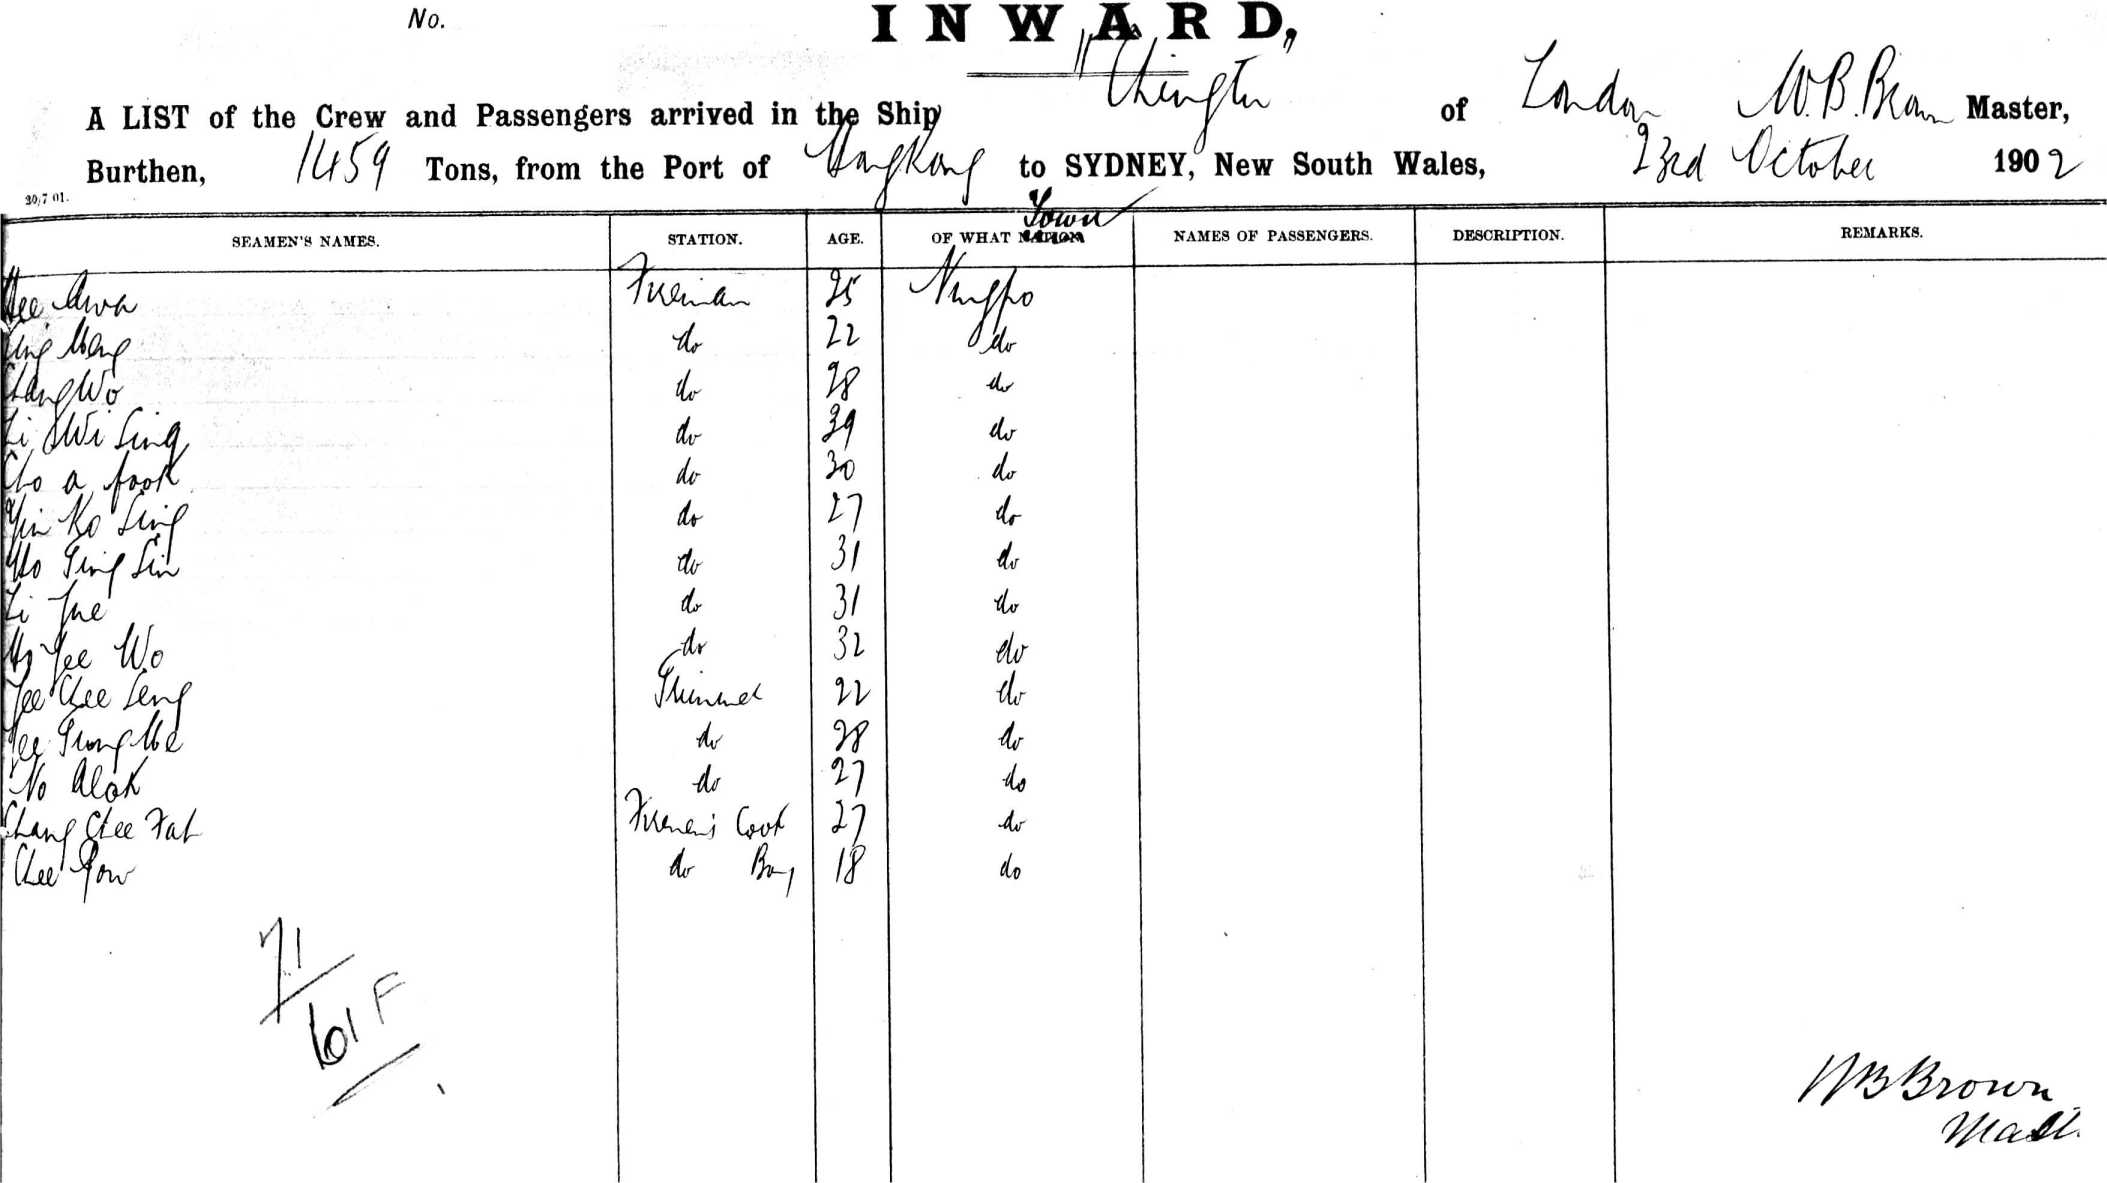 No. INWARD,
A LIST of the Crew and Passengers arrived in the Ship Chingtu of London W. B. Brown Master,
Burthen, 1459 Tons, from the Port of HongKong to SYDNEY, New South Wales, 23rd October 1902
20/7 01.
Town
SEAMEN'S NAMES. STATION. AGE. OF WHAT NATION NAMES OF PASSENGERS. DESCRIPTION. REMARKS.
Fireman 25 Ningpo
do 22 do
Chang Wo do 28 do
Li Ah Sing do 39 do
a fook do 30 do
Yin Ko Sing do 27 do
Sin do 31 do
Li do 31 do
Yee Wo do 32 do
Yee Chee Seng Trimmer 22 do
Yee do 28 do
do 27 do
Chang Chee Fat Firemen's Cook 27 do
Chee do Boy 18 do
71
61 F
WB Brown
Mast.